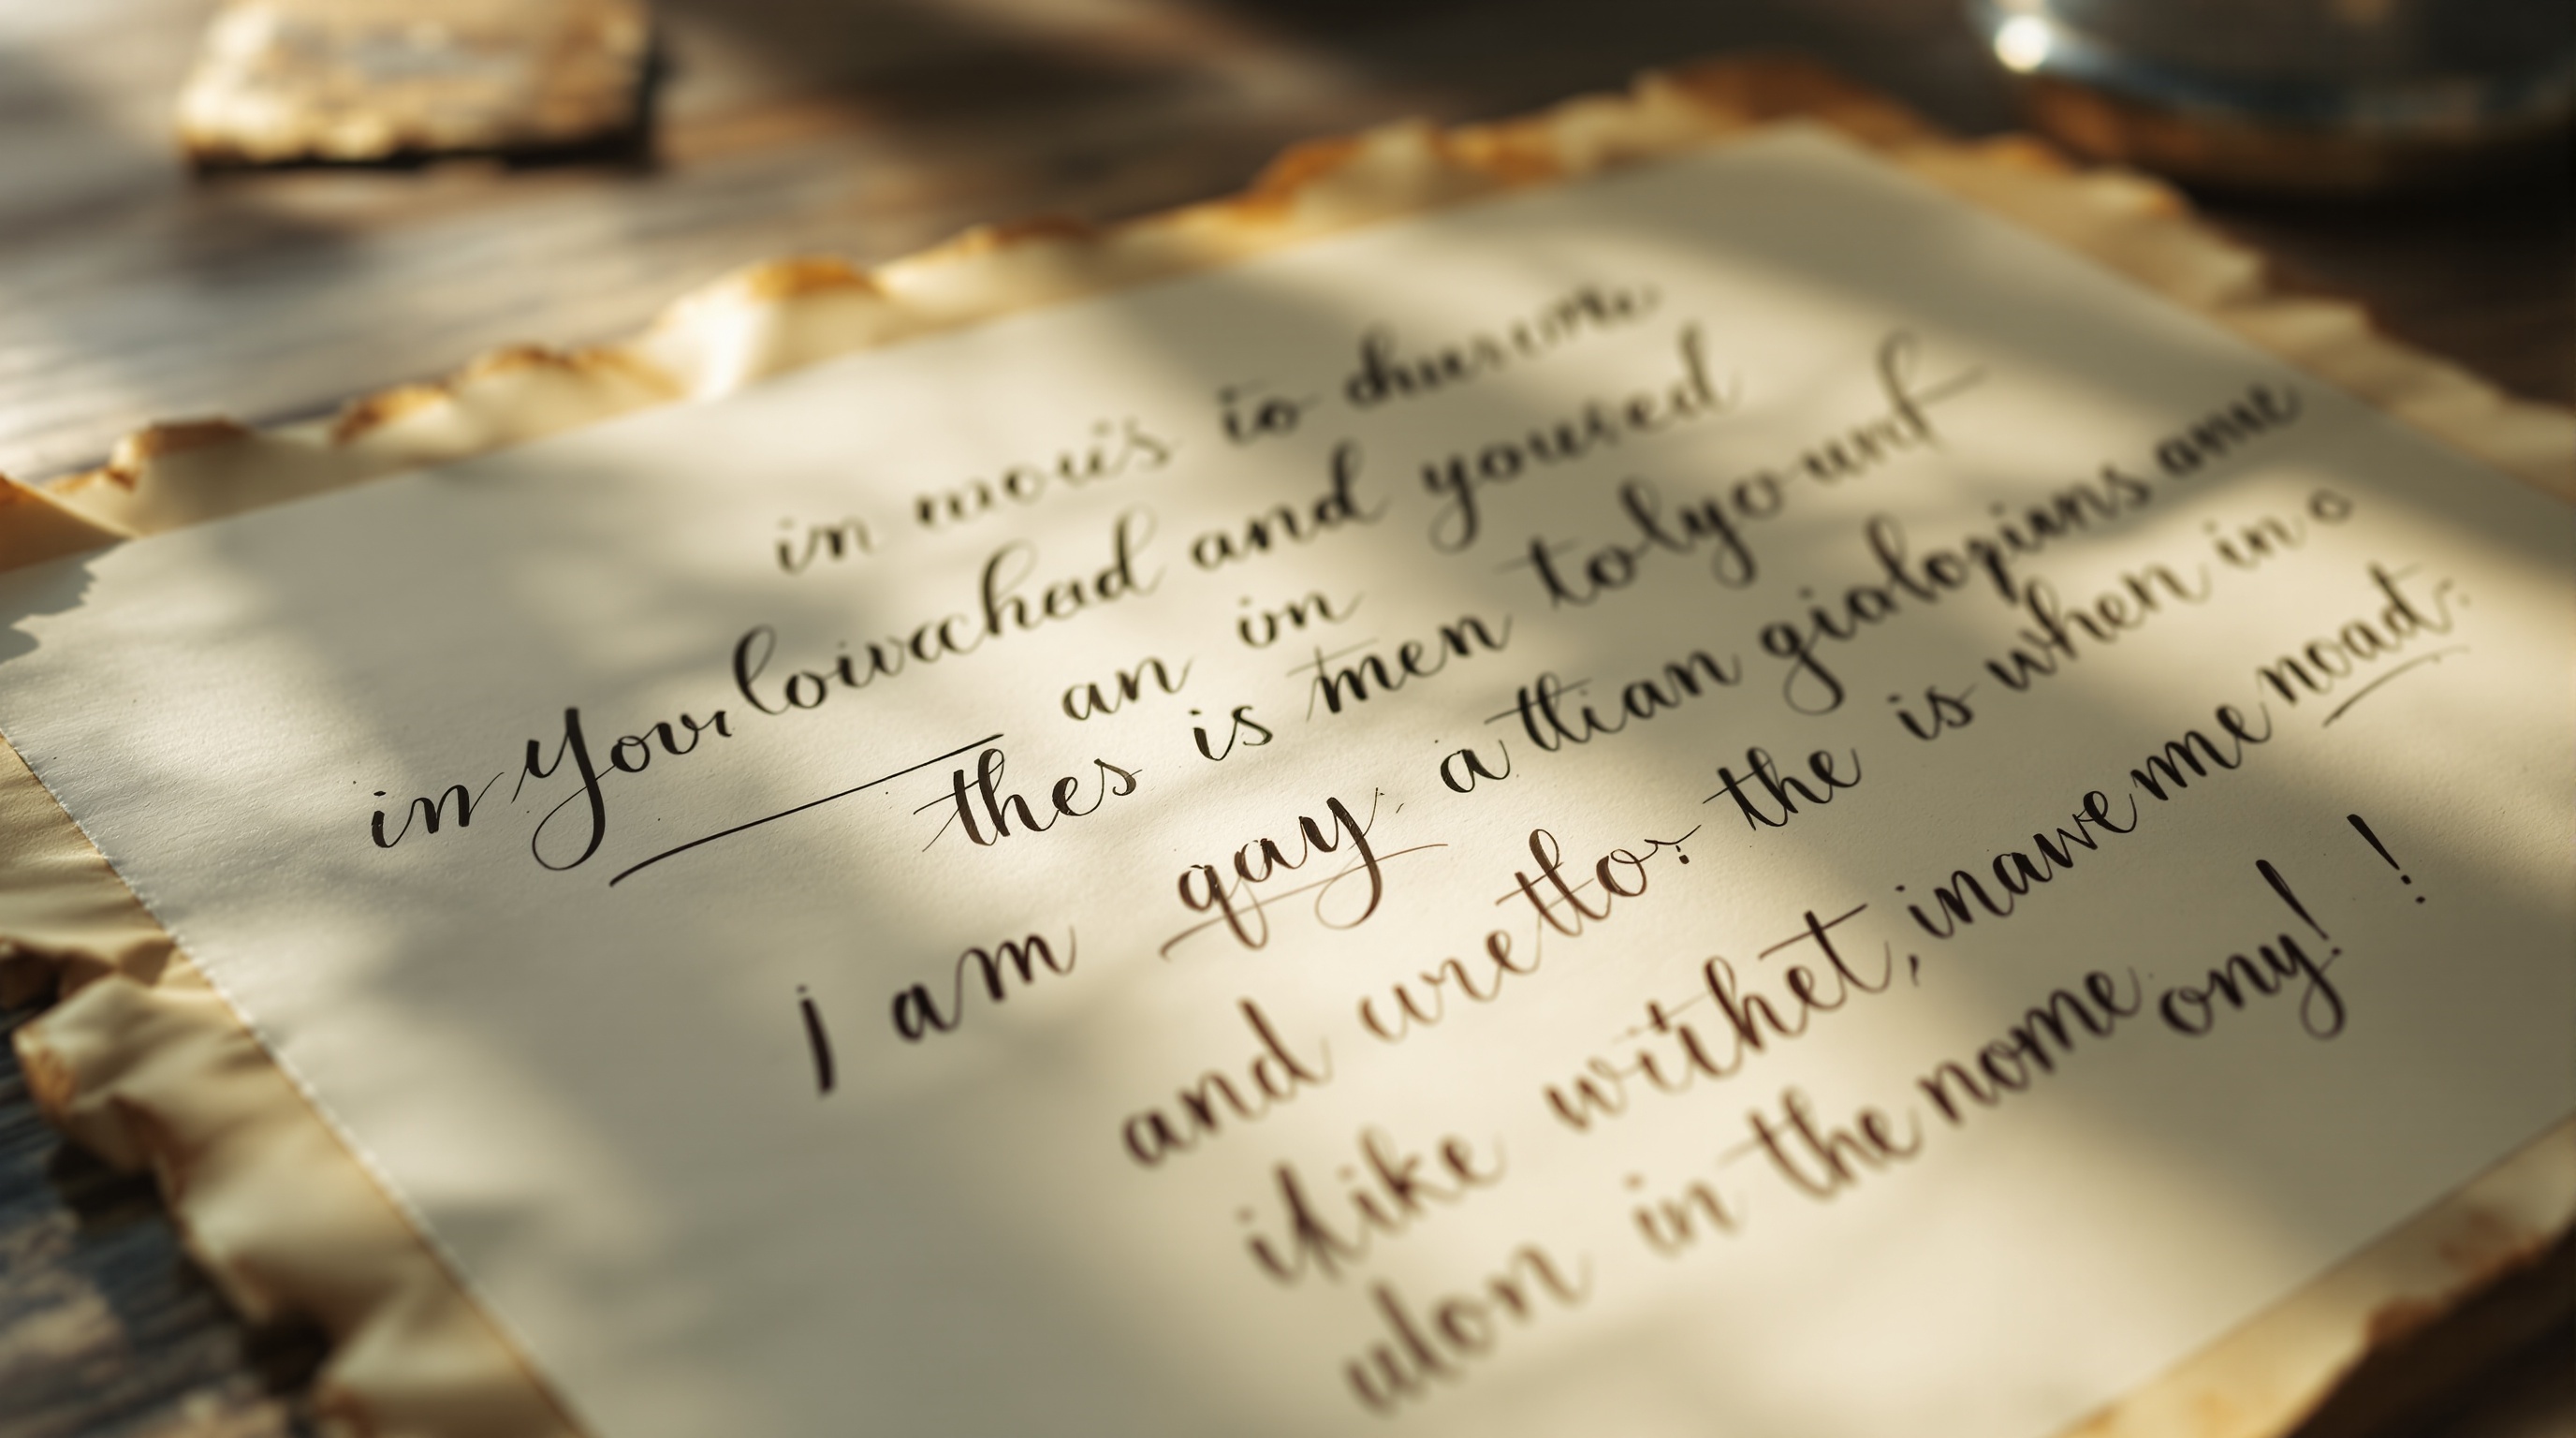 in
in Your lowachad and youred
an in
thes is men tolyount
i am gay, a ttian gialopians ame
and wretlor the is when in a
ilike withet, inawe me noad.
ulon in the nome ony! !